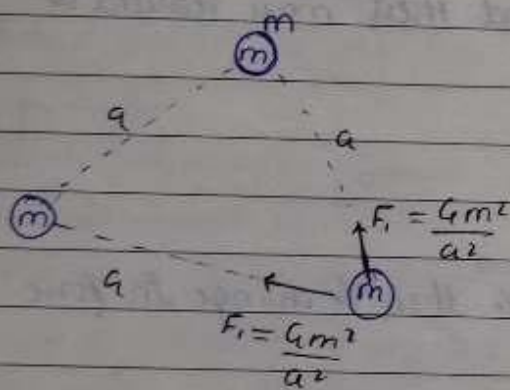 m
m
a
a
m
F₁ = Gm²/a²
a
m
F₁ = Gm²/a²